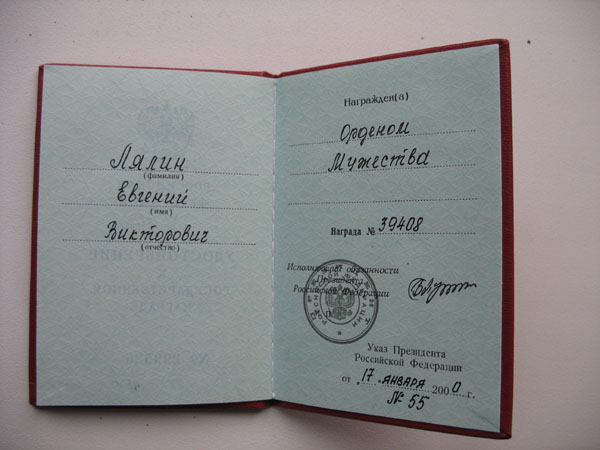 Лялин
(фамилия)
Евгений
(имя)
Викторович
(отчество)
Награжден(а)
Орденом
Мужества
Награда № 39408
Исполняющий обязанности
Президента
Российской Федерации
Указ Президента
Российской Федерации
от 17 января 2000 г.
№ 55